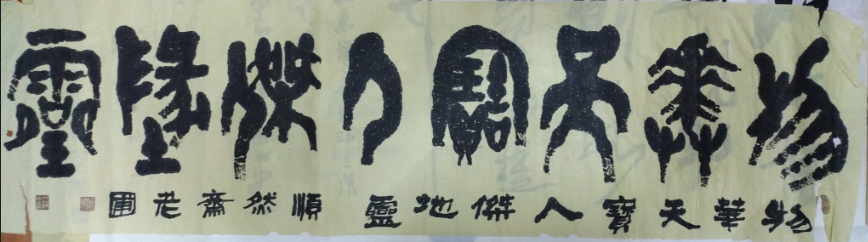 物華天寶人傑墬靈
物華天寶人傑地靈 順然齋老圃